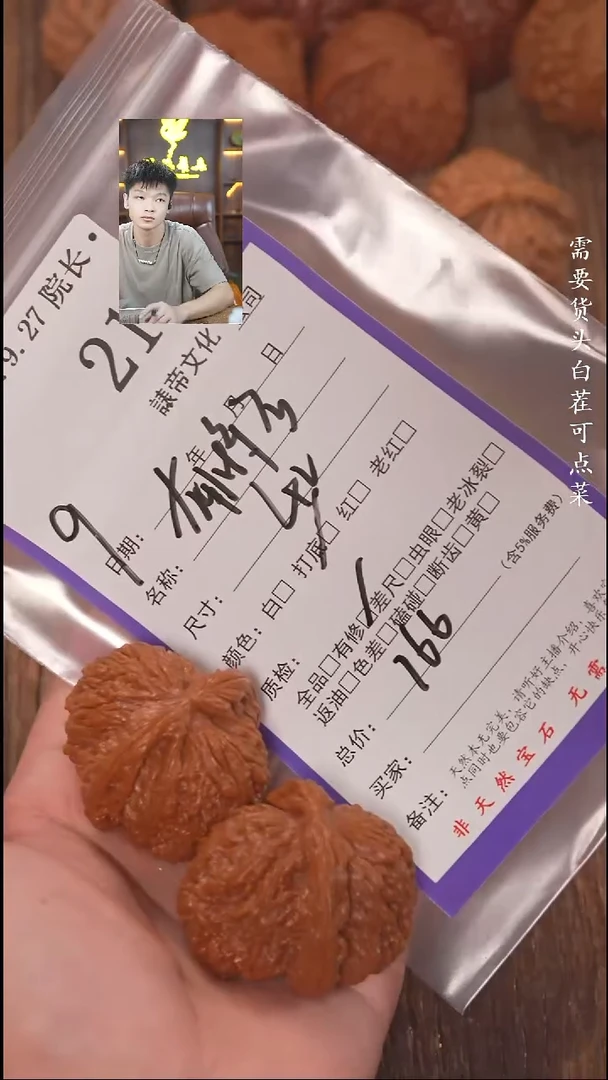 9.27 院长·
21
諘帝文化
9
日期： 年 月 日
名称：
尺寸：
颜色：白□ 打底□ 红□ 老红□
质检：
全品□有修□差尺□虫眼□老冰裂□
返油□色差□磕碰□断齿□黄□
总价：166
（含5%服务费）
买家：
备注：
天然本无完美，请听好主播介绍，喜欢
点同时也要包容它的缺点，开心快乐
非 天 然 宝 石 无 需
需要货头白茬可点菜